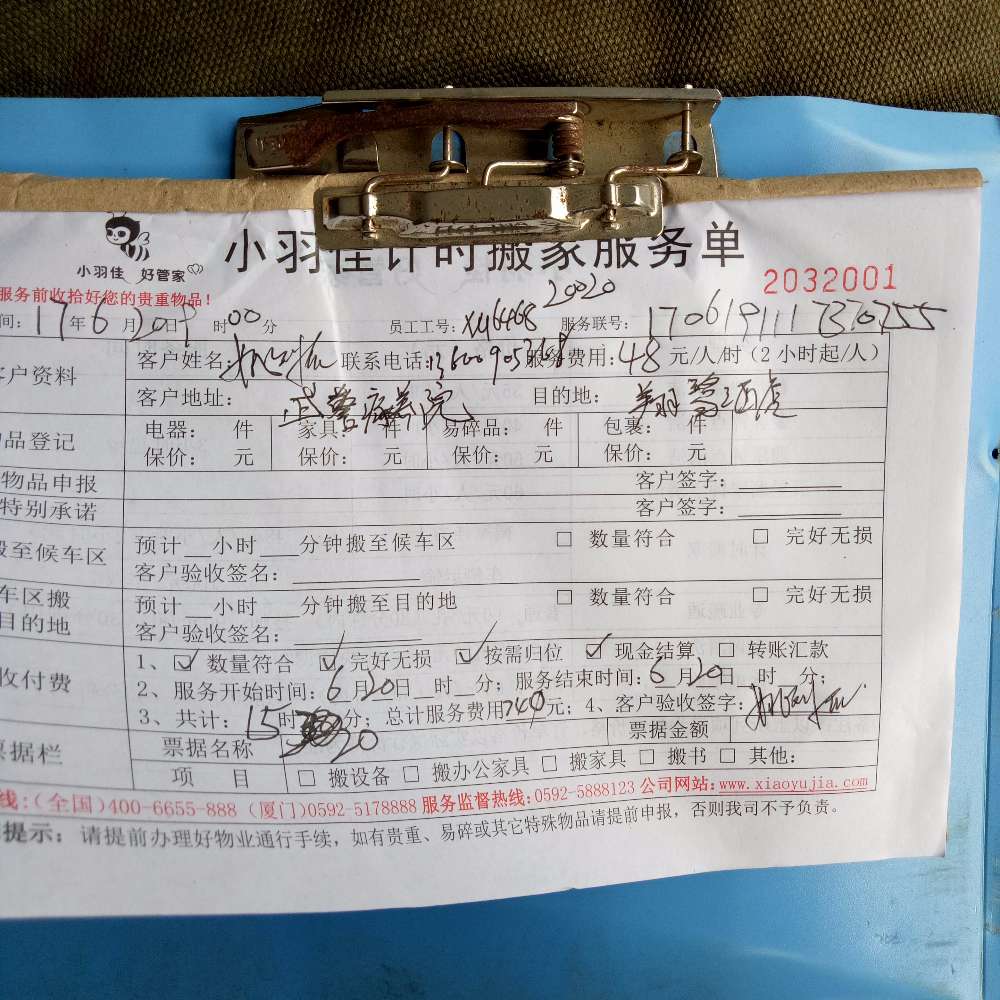 小羽佳 好管家
小羽佳计时搬家服务单
2032001
服务前收拾好您的贵重物品!
间: 17年6月20日9时00分 员工工号: XM6468 20020 服务联号: 1706191117370755
客户资料 客户姓名: 联系电话: 服务费用: 48元/人/时(2小时起/人)
客户地址: 武警疗养院 目的地: 翔鹭酒店
品登记 电器: 件 家具: 件 易碎品: 件 包裹: 件
保价: 元 保价: 元 保价: 元 保价: 元
物品申报 客户签字:
特别承诺 客户签字:
搬至候车区 预计__小时___分钟搬至候车区 □ 数量符合 □ 完好无损
客户验收签名:
车区搬 预计__小时___分钟搬至目的地 □ 数量符合 □ 完好无损
目的地 客户验收签名:
收付费 1、☑ 数量符合 ☑ 完好无损 ☑ 按需归位 ☑ 现金结算 □ 转账汇款
2、服务开始时间: 6月20日__时__分; 服务结束时间: 6月20日__时__分;
3、共计: 15时20分; 总计服务费用740元; 4、客户验收签字:
票据栏 票据名称 票据金额
项 目 □ 搬设备 □ 搬办公家具 □ 搬家具 □ 搬书 □ 其他:
线:(全国)400-6655-888 (厦门)0592-5178888 服务监督热线:0592-5888123 公司网站:www.xiaoyujia.com
提示: 请提前办理好物业通行手续,如有贵重、易碎或其它特殊物品请提前申报,否则我司不予负责。